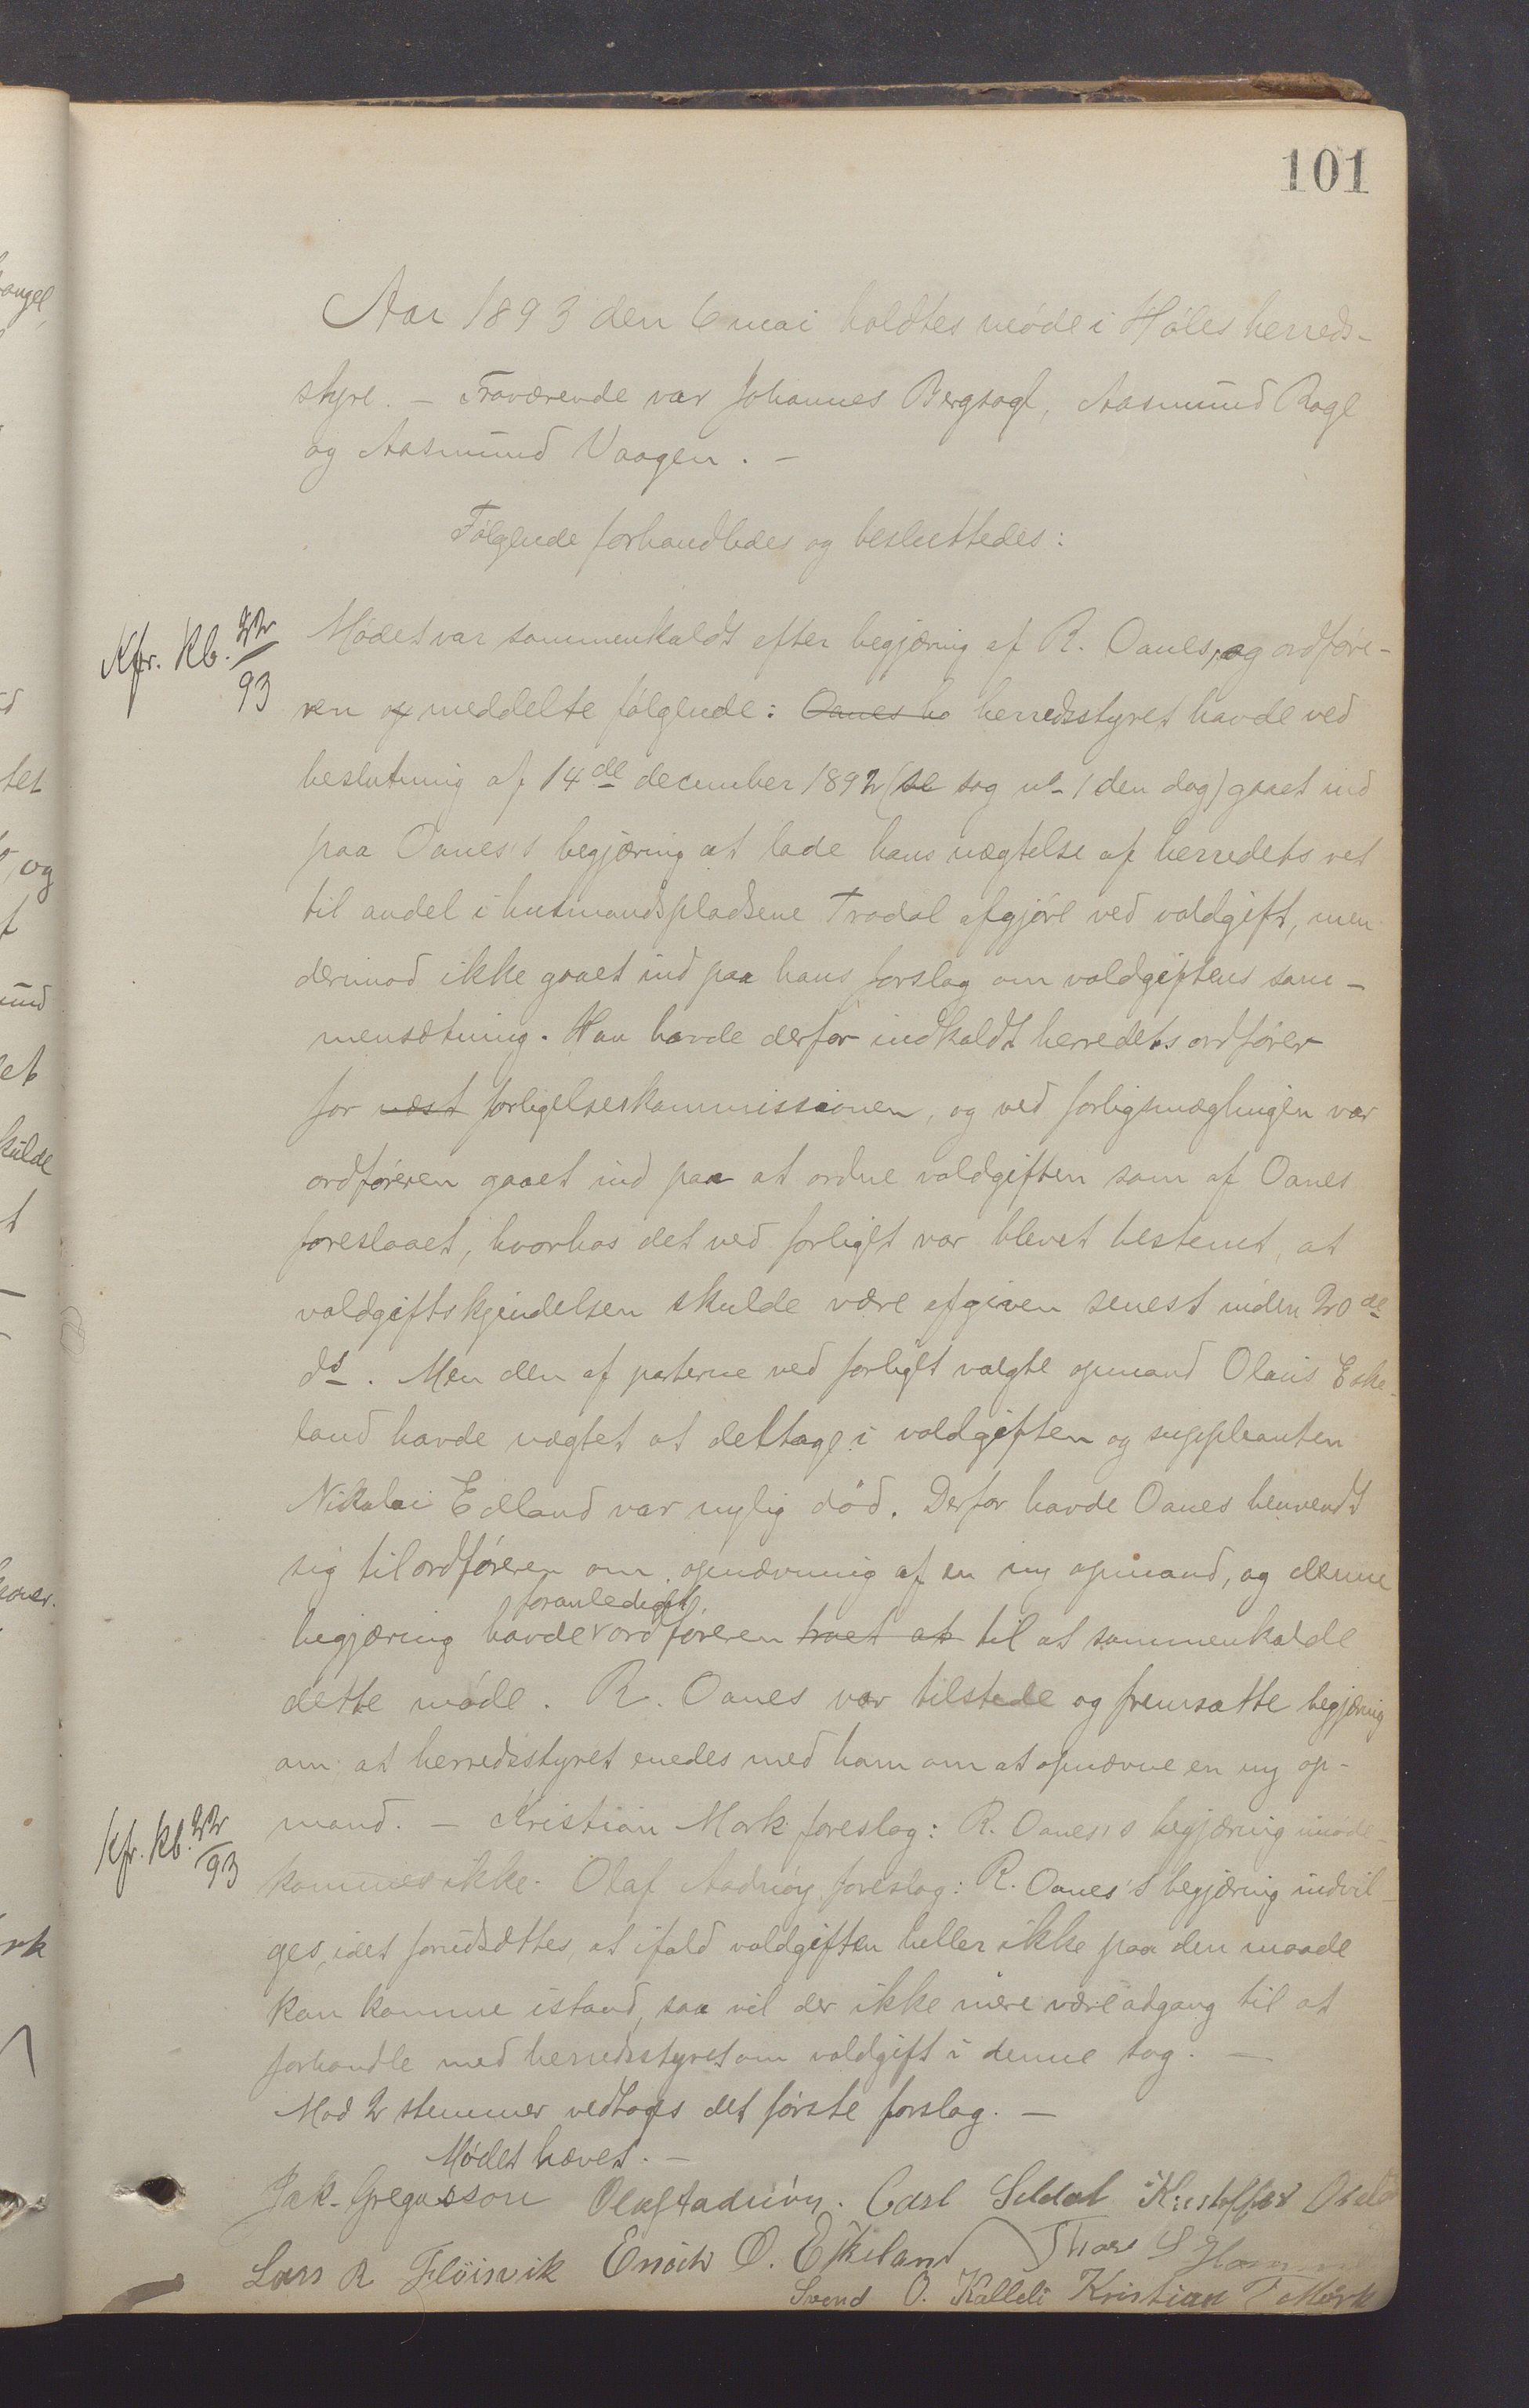 101
Aar 1893 den 6 mai holdtes møde i Høles herreds-
styre. - Fraværende var Johannes Bergsagel, Aasmund Rage
og Aasmund Vaagen. -
Følgende forhandledes og besluttedes:
Kfr. Kb. 22/93
Mødet var sammenkaldt efter begjæring af R. Oanes, og ordføre-
ren og meddelte følgende: Oanes ha herredsstyret havde ved
beslutning af 14de december 1892 (se sag no 1 den dag) gaaet ind
paa Oanes's begjæring at lade hans nægtelse af herredets ret
til andel i husmandspladsene Tradal afgjøre ved voldgift, men
derimod ikke gaaet ind paa hans forslag om voldgiftens sam-
mensætning. Han havde derfor indkaldt herredets ordfører
for væst forligelseskommissionen, og ved forligsmæglingen var
ordføreren gaaet ind paa at ordne voldgiften som af Oanes
foreslaaet, hvorhos det ved forliget var blevet bestemt, at
voldgiftskjendelsen skulde være afgiven senest inden 20de
ds. Men den af parterne ved forliget valgte opmand Olaus Eske-
land havde nægtet at deltage i voldgiften og suppleanten
Nikolai Edland var nylig død. Derfor havde Oanes henvendt
sig til ordføreren om opnævning af en ny opmand, og denne
foranlediget
begjæring havde ordføreren troet at til at sammenkalde
dette møde. R. Oanes var tilstede og fremsatte begjæring
om at herredsstyret enedes med ham om at opnævne en ny op-
Kfr. Kb. 22/93
mand. - Kristian Mørk foreslog: R. Oanes's begjæring imøde-
kommes ikke. Olaf Aadnøy foreslog: R. Oanes's begjæring indvil-
ges, idet forudsættes, at ifald voldgiften heller ikke paa den maade
kan komme istand, saa vil der ikke mere være adgang til at
forhandle med herredsstyret om voldgift i denne sag. -
Mod 2 stemmer vedtoges det første forslag. -
Mødet hævet. -
Jak. Gregersson Olaf Aadnøy. Carl Seldal Kristoffer
Lars R Fløisvik Enoch O. Eskeland Thore S
Svend O. Kalleli Kristian T Mørk